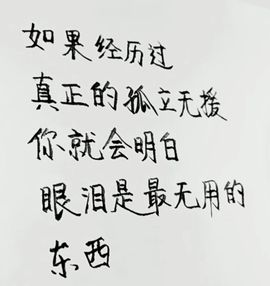 如果经历过
真正的孤立无援
你就会明白
眼泪是最无用的
东西